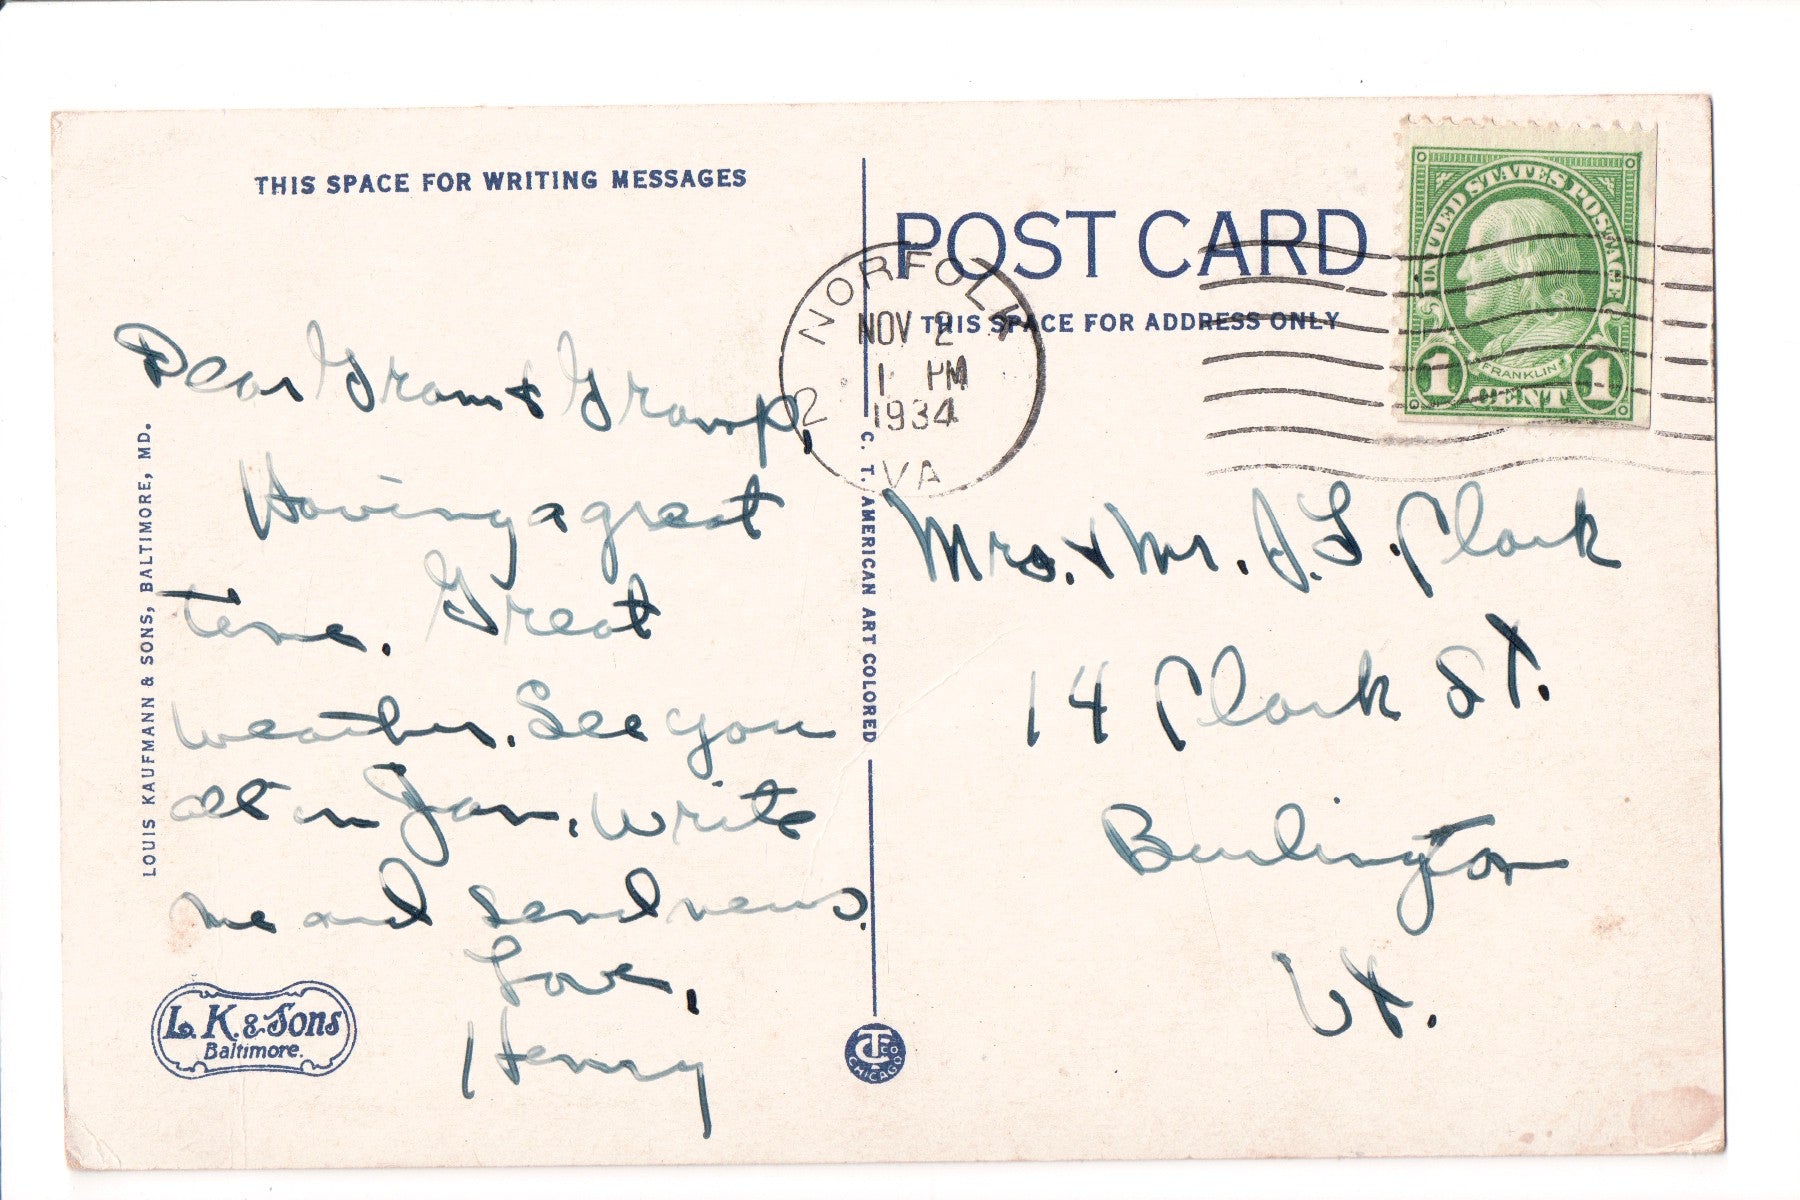 THIS SPACE FOR WRITING MESSAGES
Dear Gram & Gramp,
Having a great
time. Great
weather. See you
all in Jan. Write
me and send news.
Love,
Henry
LOUIS KAUFMANN & SONS, BALTIMORE, MD.
L. K. & Sons
Baltimore.
C. T. AMERICAN ART COLORED
CT CO
CHICAGO
POST CARD
THIS SPACE FOR ADDRESS ONLY
NORFOLK 2
NOV 2
1 PM
1934
VA
UNITED STATES POSTAGE
FRANKLIN
1 CENT 1
Mrs. & Mr. J. L. Clark
14 Clark St.
Burlington
Vt.